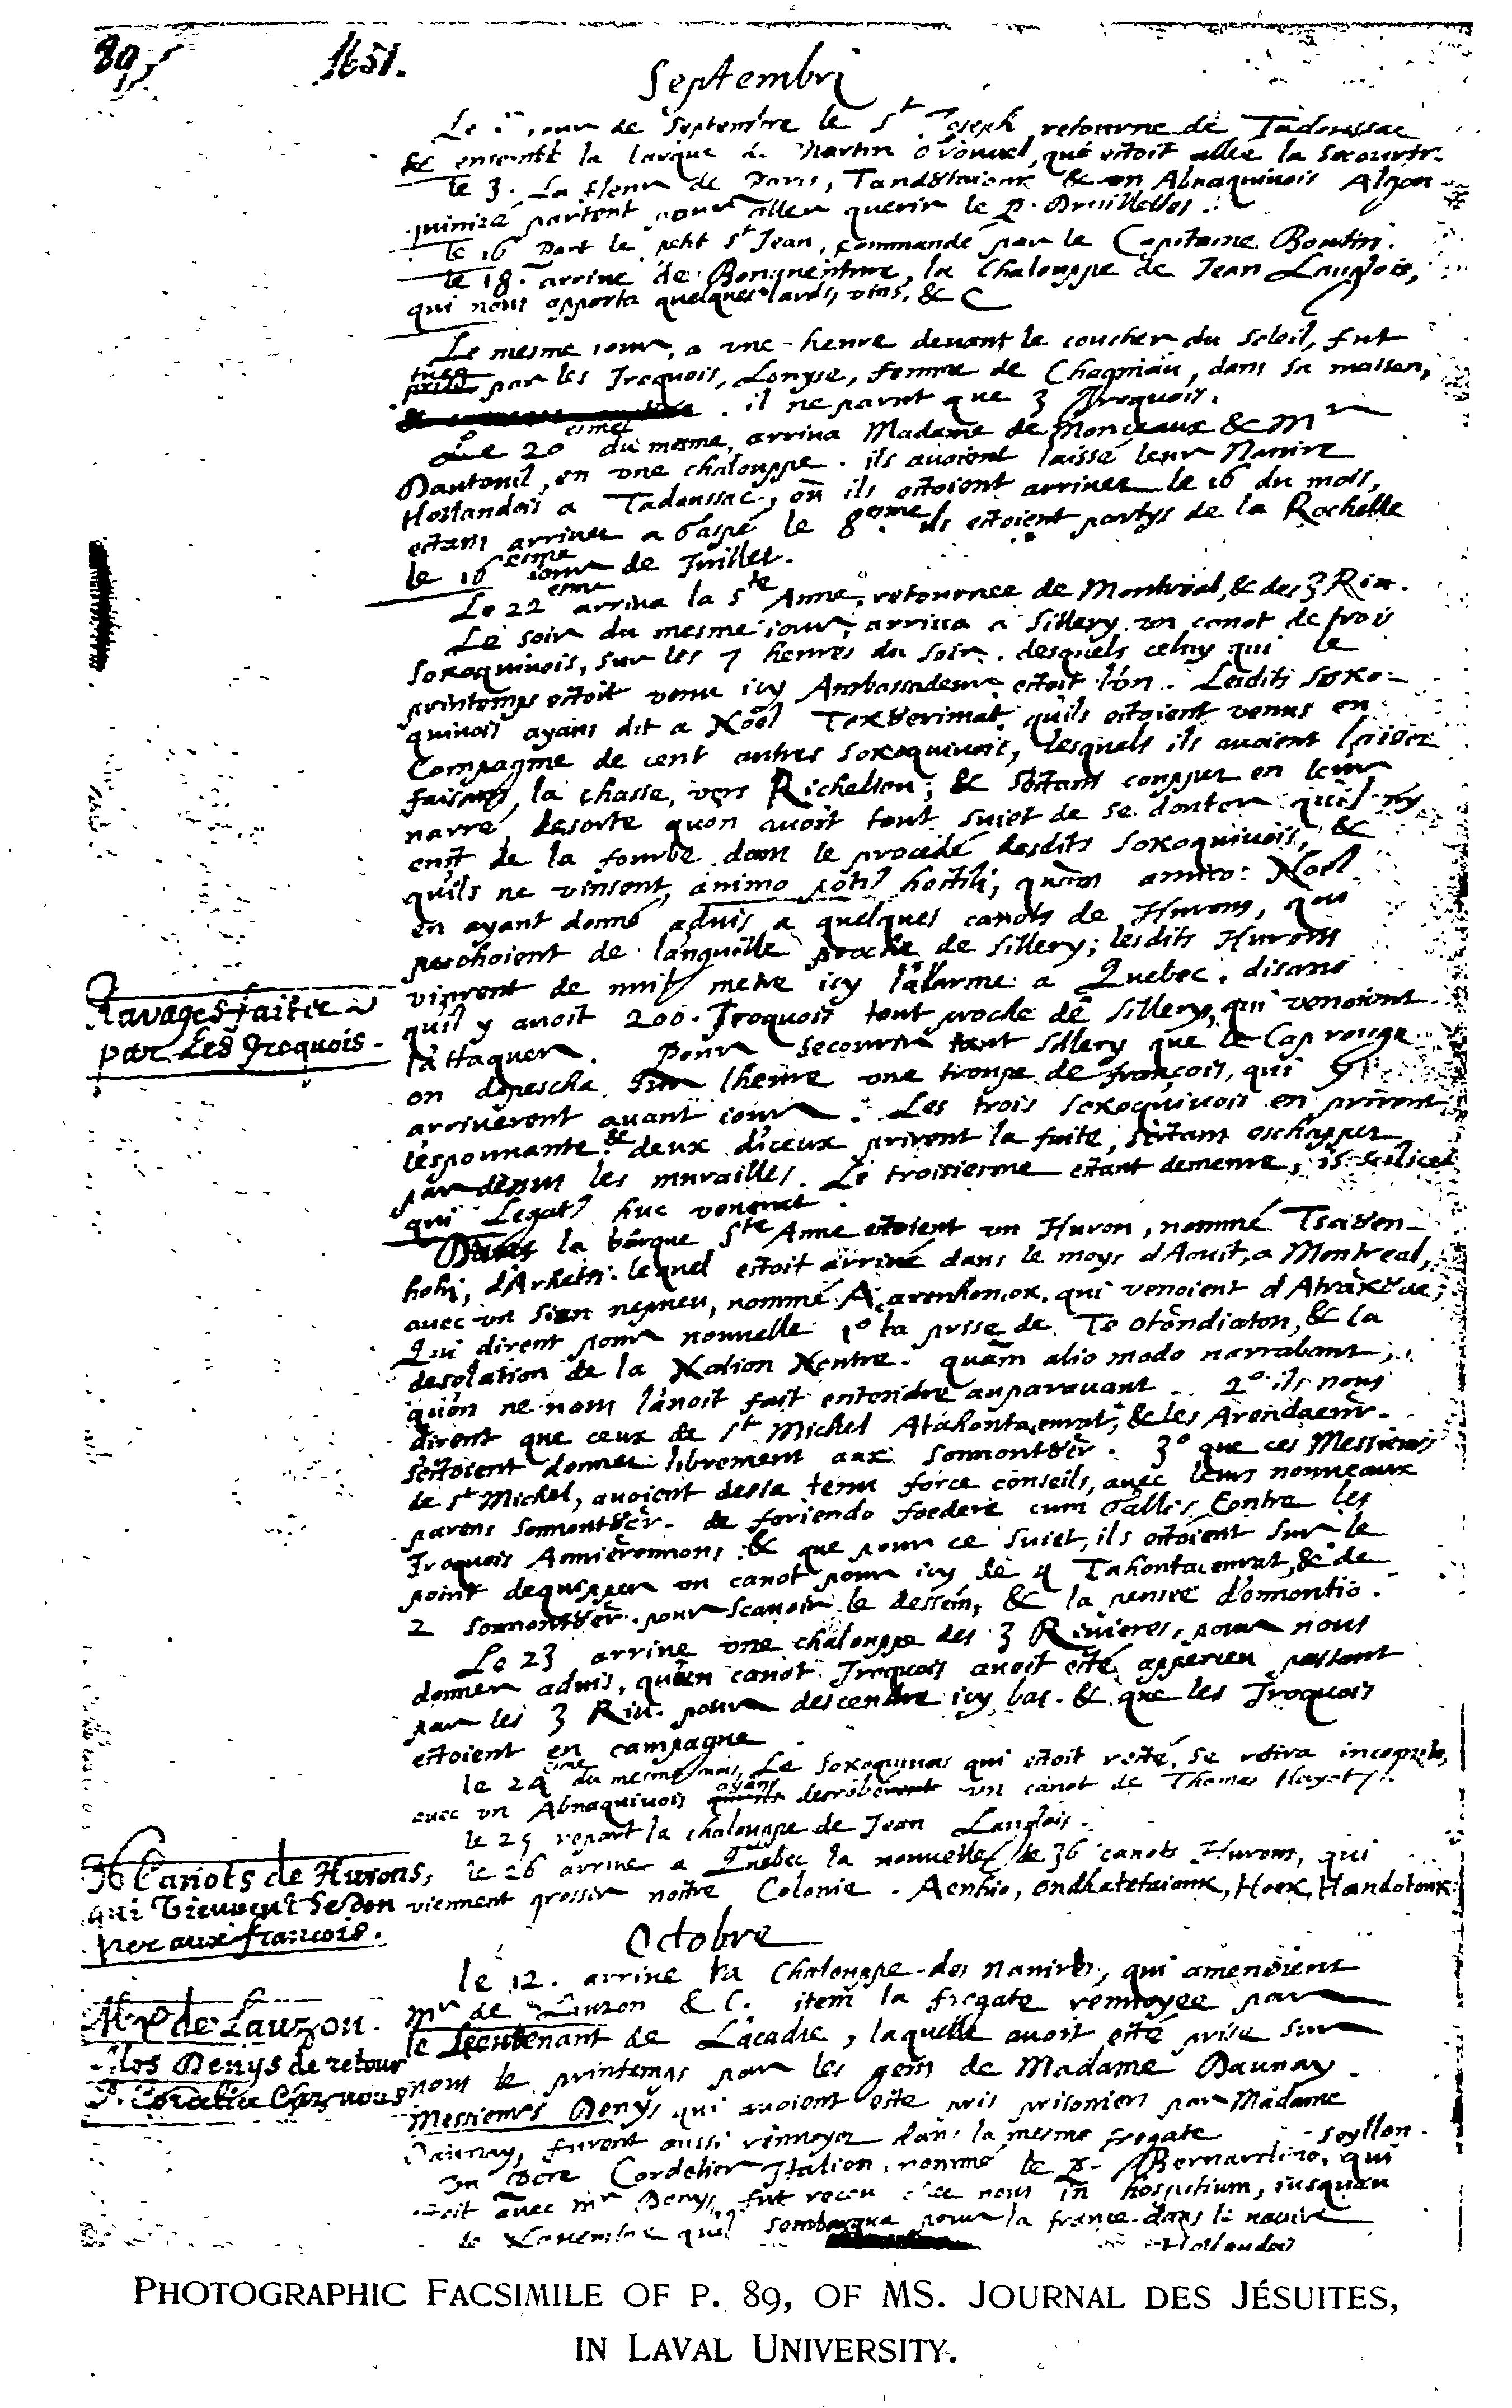 89
1651.
Septembri
Le jour de Septembre le St Joseph retourne de Tadoussac
& ensemble la barque de Martin Provuel, qui estoit allee la secourir.
le 3. La fleur de Paris, Tand8taionk & un Abnaquiuois Algon
quinizé partent pour aller querir le P. Druillettes.
le 16 Part le petit St Jean, commandé par le Capitaine Boutin.
le 18. arriue de Bonauenture, la Chalouppe de Jean Langlois,
qui nous apporta quelques lards, vins, & C
Le mesme iour, a vne heure deuant le coucher du Soleil, fut
tuée
prise par les Iroquois, Louyse, femme de Chagniau, dans sa maison,
il ne parut que 3 Iroquois.
Le 20 esme du mesme, arriua Madame de Monceaux & Mr
Dauteuil, en vne chalouppe. ils auoient laissé leur Nauire
Hollandois a Tadoussac, où ils estoient arriuez le 16 du mois,
estans arriuez a Gaspé le 8esme. ils estoient partys de la Rochelle
le 16 esme iour de Juillet.
Le 22 esme arriua la Ste Anne, retournee de Montreal, & des 3 Riu.
Le soir du mesme iour, arriua a Sillery vn canot de trois
Sokoquinois, sur les 7 heures du soir. desquels celuy qui le
printemps estoit venu icy Ambassadeur estoit l'vn. Lesdits Soko-
quinois ayans dit a Noël Tek8erimat, quils estoient venus en
Compagnie de cent autres Sokoquinois, lesquels ils auoient laissez
faisans la chasse, vers Richelieu; & s'estans couppez en leur
narré, desorte quon auoit tout suiet de se douter quil ny
eust de la fourbe dans le procedé desdits Sokoquinois, &
quils ne vinsent, animo poti9 hostili, quam amico: Noël
en ayant donné aduis a quelques canots de Hurons, qui
peschoient de l'anguille proche de Sillery; lesdits Hurons
vinrent de nuit metre icy l'alarme a Quebec, disans
quil y auoit 200. Iroquois tout proche de Sillery, qui venoient
l'attaquer. Pour secourir tant Sillery que le Cap rouge
on depescha sur lheure vne troupe de françois, qui y
arriuerent auant iour. Les trois Sokoquinois en prirent
l'espouuante & deux d'iceux prirent la fuite, s'estans eschappez
par dessus les murailles. Le troisiesme estant demeuré, is scilicet
qui Legat9 huc venerat.
Dans la barque Ste Anne estoient vn Huron, nommé Tsa8en-
hohi, d'Arhetsi. lequel estoit arriué dans le moys d'Aoust, a Montreal,
avec vn sien nepueu, nommé qui venoient d'Atrak8ae;
Qui dirent pour nouuelle 1o la prise de Te otondiaton, & la
desolation de la Nation Neutre. quam alio modo narrabant,
qu'on ne nous l'auoit fait entendre auparauant. 2o ils nous
dirent que ceux de St Michel & les
s'estoient donnez librement aux Sonnont8er. 3o que ces Messieurs
de St Michel, auoient desia tenu force conseils, avec leurs nouueaux
parens Sonnont8er. de feriendo foedere cum Gallis, contre les
Iroquois Annieronnons: & que pour ce suiet, ils estoient sur le
point dequipper vn canot pour icy de 4 & de
2 Sonnont8er. pour scauoir le dessein, & la pensée d'Onnontio.
Le 23 arriue vne chalouppe des 3 Riuieres, pour nous
donner aduis, qu'un canot Iroquois auoit esté apperceu passant
par les 3 Riu. pour descendre icy bas. & que les Iroquois
estoient en campagne.
le 24 esme du mesme mois, Le Sokoquinois qui estoit resté, se retira incognito,
avec vn Abnaquiuois ayans desrobé vn canot de Thomas Hayot.
le 25 repart la chalouppe de Jean Langlois.
le 26 arriue a Quebec la nouuelle de 36 canots Hurons, qui
viennent grossir nostre Colonie.
Octobre
le 12. arriue la Chalouppe des nauires, qui amenoient
Mr de Lauzon & C. item la fregate renuoyée par
le Lieutenant de L'acadie, laquelle auoit esté prise sur
nous le printemps par les gens de Madame Daunay.
Messieurs Denys qui auoient esté pris prisoniers par Madame
Daunay, furent aussi renuoyez dans la mesme fregate
Un Pere Cordelier Italien, nommé le P. Bernardino, qui
estoit avec Mr Denys, fut receu chez nous in hospitium, iusquau
de Nouembre quil sembarqua pour la france dans le nauire
Hollandois
Rauages faitte
par Les Iroquois.
36 Canots de Hurons,
qui Vienuent Se don
ner aux francois.
Mr de Lauzon.
Mos Denys de retour
Photographic Facsimile of p. 89, of MS. Journal des Jésuites,
in Laval University.